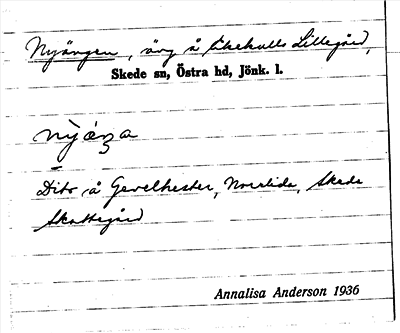 Nyängen, äng å Ekekulls Lillegård,
Skede sn, Östra hd, Jönk. l.
nỳǽŋa
Dito å Gevelhester, Norrlida, Skede
Skattegård
Annalisa Anderson 1936